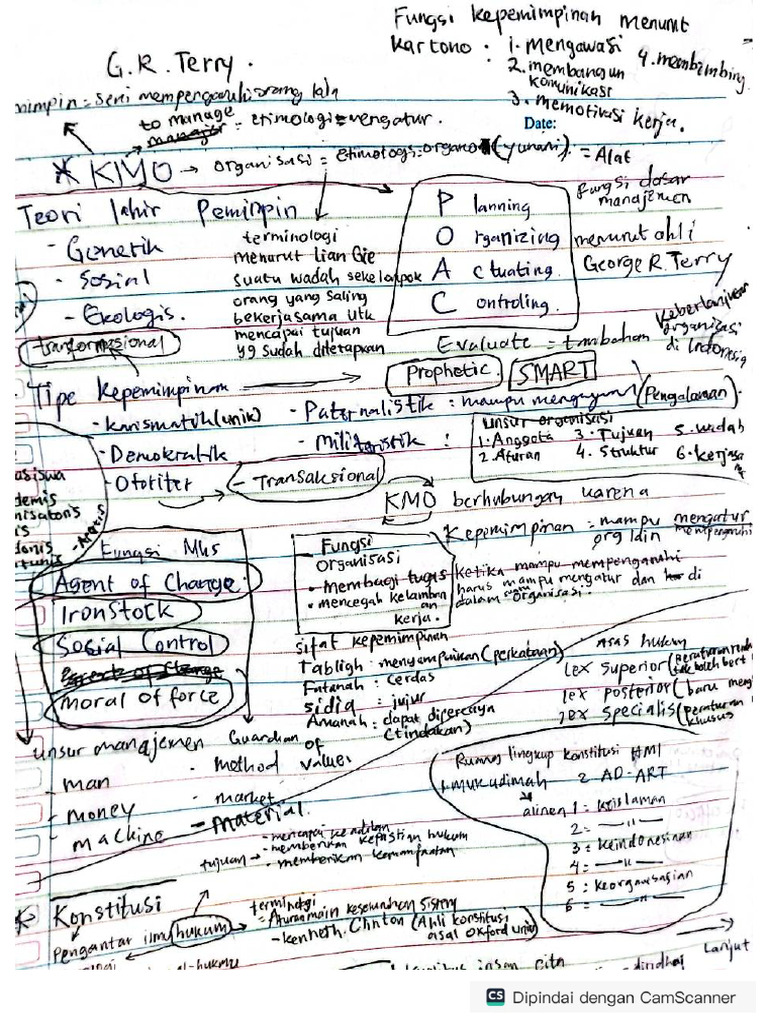 Fungsi kepemimpinan menurut
Kartono : 1. mengawasi 4. membimbing
2. membangun
komunikasi
3. memotivasi kerja.
G.R. Terry.
mimpin = seni mempengaruhi orang lain
to manage
= etimologi = mengatur.
Date:
* KMO → organisasi = etimologi = organo (yunani). = Alat
Teori lahir Pemimpin
- Genetik
- Sosial
- Ekologis.
transformasional
terminologi
menurut Lian Gie
suatu wadah sekelompok
orang yang saling
bekerjasama utk
mencapai tujuan
yg sudah ditetapkan
P lanning
O rganizing
A ctuating.
C ontroling.
fungsi dasar
manajemen
menurut ahli
George R. Terry
Evaluate = tambahan
Keberlanjutan
organisasi
di Indonesia
Tipe kepemimpinan → Prophetic. SMART
- karismatik (unik)
- Demokratik
- Otoriter
- Paternalistik : mampu mengayomi (Pengalaman).
- Militeristik :
- Transaksional
unsur organisasi
1. Anggota 3. Tujuan 5. wadah
2. Aturan 4. Struktur 6. kerjasama
KMO berhubungan karena
Kepemimpinan = mampu mengatur
org lain mempengaruhi
Ketika mampu mempengaruhi
harus mampu mengatur dan di
dalam organisasi.
Fungsi Mhs
Agent of Change.
Iron Stock
Sosial Control
moral of force
Guardian
of
values
- Fungsi
organisasi
• Membagi tugas
• mencegah kelamban
an
kerja.
sifat kepemimpinan
Tabligh : menyampaikan (perkataan)
Fatanah : cerdas
sidiq : jujur
Amanah : dapat dipercaya
(tindakan)
Asas hukum
lex superior (peraturan
tak boleh bert
lex posterior (baru meng
lex specialis (peraturan
khusus
unsur manajemen
- man
- money
- machine
- method
- market
- material
Ruang lingkup konstitusi HMI
1. mukadimah 2. AD-ART
alinea 1 : keislaman
2 : — " —
3 : keindonesiaan
4 : — " —
5 : keorganisasian
6 = — " —
tujuan → - mencapai keadilan
- memberikan kepastian hukum
- memberikan kemanfaatan
Konstitusi
Pengantar ilmu hukum
terminologi
= Aturan main keseluruhan sistem
- kenneth. Clinton (Ahli konstitusi
asal Oxford univ)
Lanjut
insan cita
CS Dipindai dengan CamScanner